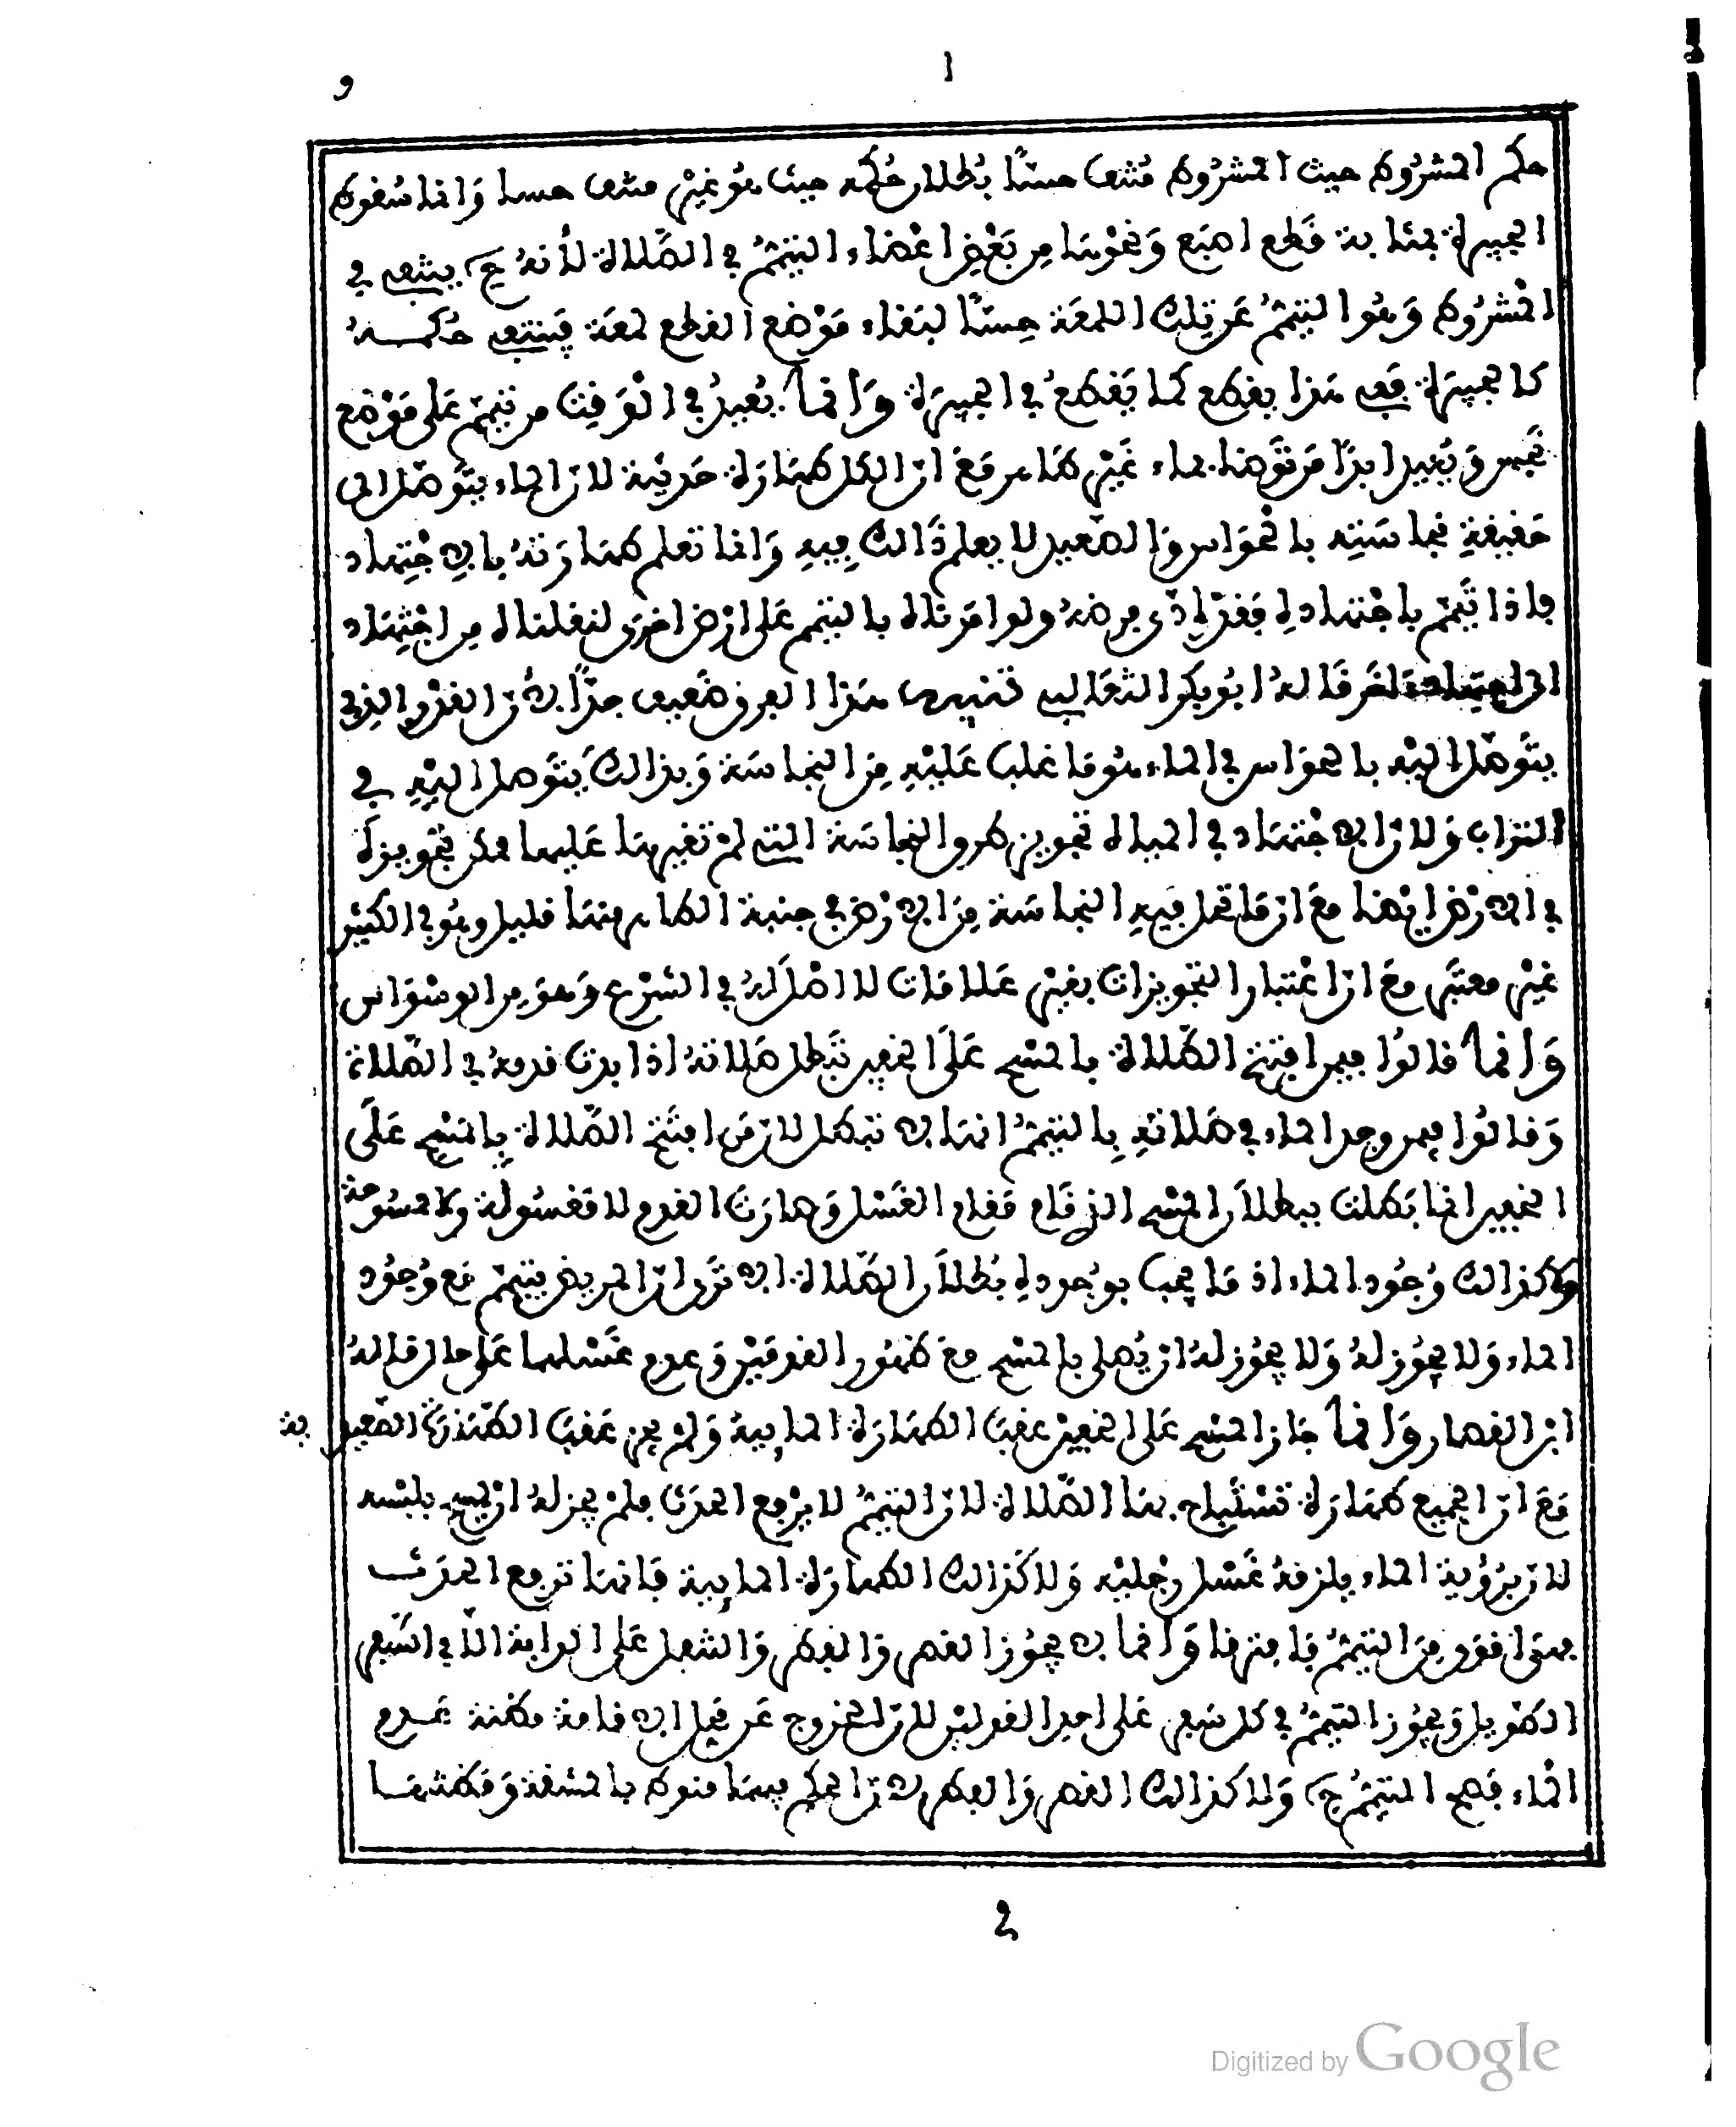 و ا
حكم المشروط حيث المشروط منتف حسا بطلان حكمه حيث هو غير منتف حسا وانما سقوط
الجبيرة بمثابة قطع اصبع ونحوها من بعض اعضاء التيمم في الصلاة لأنه ح ينتفي في
المشروط وهو التيمم عن تلك اللمعة حسا لبقاء موضع القطع لمعة فينتفي حكمه
كالجبيرة ففي هذا يقطع كما يقطع في الجبيرة وانما يعيد في الوقت من تيمم على موضع
نجس ويعيد ابدا من توضا بماء غير طاهر مع ان الكل طهارة حدثية لان الماء يتوصل الى
حقيقة نجاسته بالحواس والصعيد لا يعلم ذالك فيه وانما تعلم طهارته بالاجتهاد
فاذا تيمم باجتهاده فقد ادى فرضه ولو امرناه بالتيمم على ارض اخرى لنقلناه من اجتهاد
الى اجتهاد اخر قاله ابو بكر الثعالبي تنبيه هذا الفرق ضعيف جدا لان القدر الذي
يتوصل اليه بالحواس في الماء هو ما غلب عليه من النجاسة وبذالك يتوصل اليه في
التراب ولان الاجتهاد في المياه تجويز طرو النجاسة التي لم تغيرها عليها ممكن تجويزه
في الارض ايضا مع ان ما تحل فيه النجاسة من الارض في جنبة الطاهر منها قليل وهو في الكثير
غير معتبر مع ان اعتبار التجويزات بغير علامات لا اصل له في الشرع وهو من الوسواس
وانما قالوا فيمن افتتح الصلاة بالمسح على الخفين تبطل صلاته اذا بدت قدمه في الصلاة
وقالوا فيمن وجد الماء في صلاته بالتيمم انها لا تبطل لان من افتتح الصلاة بالمسح على
الخفين انما بطلت ببطلان المسح الذي قام مقام الغسل وصارت القدم لا مغسولة ولا ممسوحة
ولا كذالك وجود الماء اذ ما يجب بوجوده بطلان الصلاة الا ترى ان المريض يتيمم مع وجود
الماء ولا يجوز له ولا يجوز له ان يصلي بالمسح مع ظهور القدمين وعدم غسلهما على حال قاله
ابن القصار وانما جاز المسح على الخفين عقب الطهارة المايية ولم يجز عقب الطهارة الصعيد ية
مع ان الجميع طهارة تستباح بها الصلاة لان التيمم لا يرفع الحدث فلم يجز له ان يمسح بلبسه
لان برؤية الماء يلزمه غسل رجليه ولا كذالك الطهارة المايية فانها ترفع الحدث
فهي اقوى من التيمم فافترقا وانما لا يجوز القصر والفطر والتنفل على الدابة الا في السفر
الطويل ويجوز التيمم في كل سفر على احد القولين لان الخروج عن محل الاقامة مظنة عدم
الماء فصح التيمم ح ولا كذالك القصر والفطر لان الحكم فيهما منوط بالمشقة ومظنتها